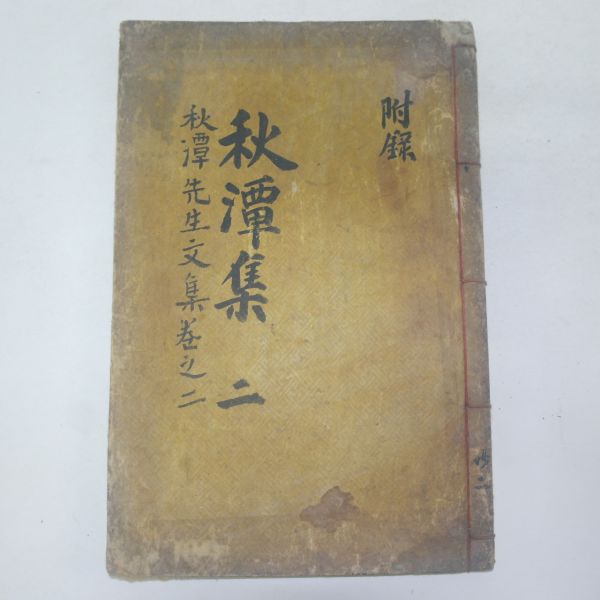 附錄
秋潭集 二
秋潭先生文集卷之二